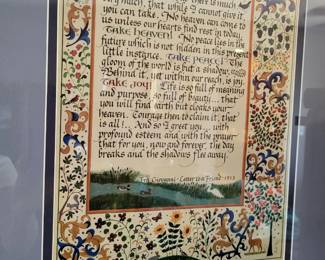 very much, that while I cannot give it,
you can take. No heaven can come to
us unless our hearts find rest in today.
TAKE HEAVEN! No peace lies in the
future which is not hidden in this present
little instance. TAKE PEACE! The
gloom of the world is but a shadow.
Behind it, yet within our reach, is joy.
TAKE JOY! Life is so full of meaning
and purpose, so full of beauty... that
you will find earth but cloaks your
heaven. Courage then to claim it; that
is all!... And so I greet you... with
profound esteem and with the prayer
that for you, now and forever, the day
breaks and the shadows flee away.
Giovanni - Letter to a Friend - 1513